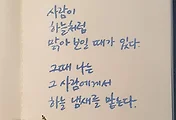 사람이
하늘처럼
맑아 보일 때가 있다.
그때 나는
그 사람에게서
하늘 냄새를 맡는다.